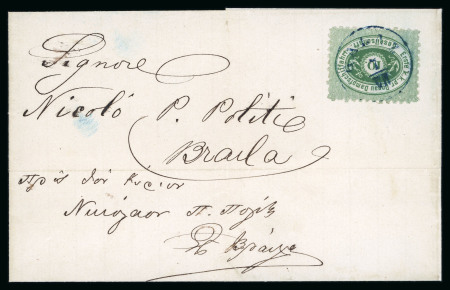 Signore
Nicoló P. Politi
Braila
πρὸς τὸν Κύριον
Νικόλαον Π. Πολίτη
Βράιλα